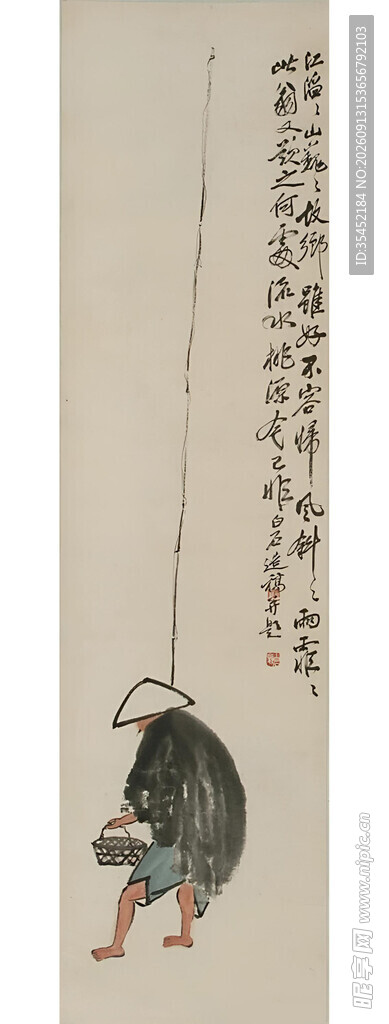 江滔〻山巍〻故鄉雖好不容歸風斜〻雨霏〻
此翁又欲之何處流水桃源今已非白石造稿并題
ID:35452184 NO:20260913153656792103
昵享网 www.nipic.cn